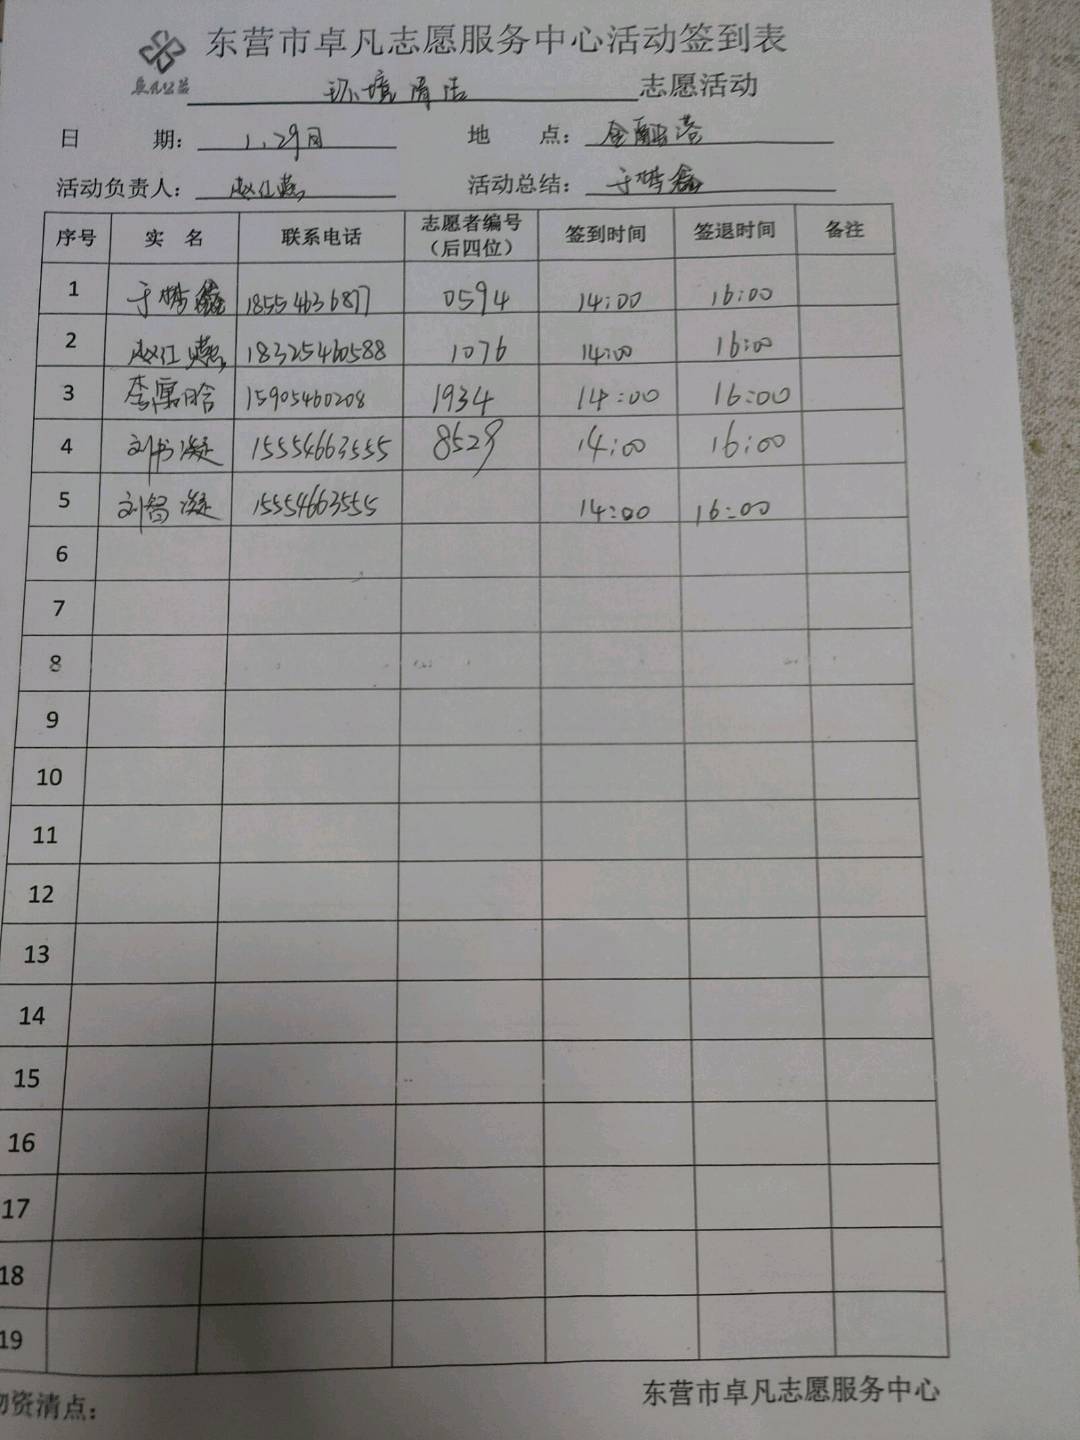 东营市卓凡志愿服务中心活动签到表
卓凡公益
环境清洁 志愿活动
日 期： 1.29日 地 点： 金融港
活动负责人： 活动总结：
序号 实 名 联系电话 志愿者编号（后四位） 签到时间 签退时间 备注
1 18554636877 0594 14:00 16:00
2 18325460588 1076 14:00 16:00
3 李寓晗 15905460208 1934 14:00 16:00
4 刘书凝 15554663555 8529 14:00 16:00
5 刘智凝 15554663555 14:00 16:00
6
7
8
9
10
11
12
13
14
15
16
17
18
19
资清点：
东营市卓凡志愿服务中心